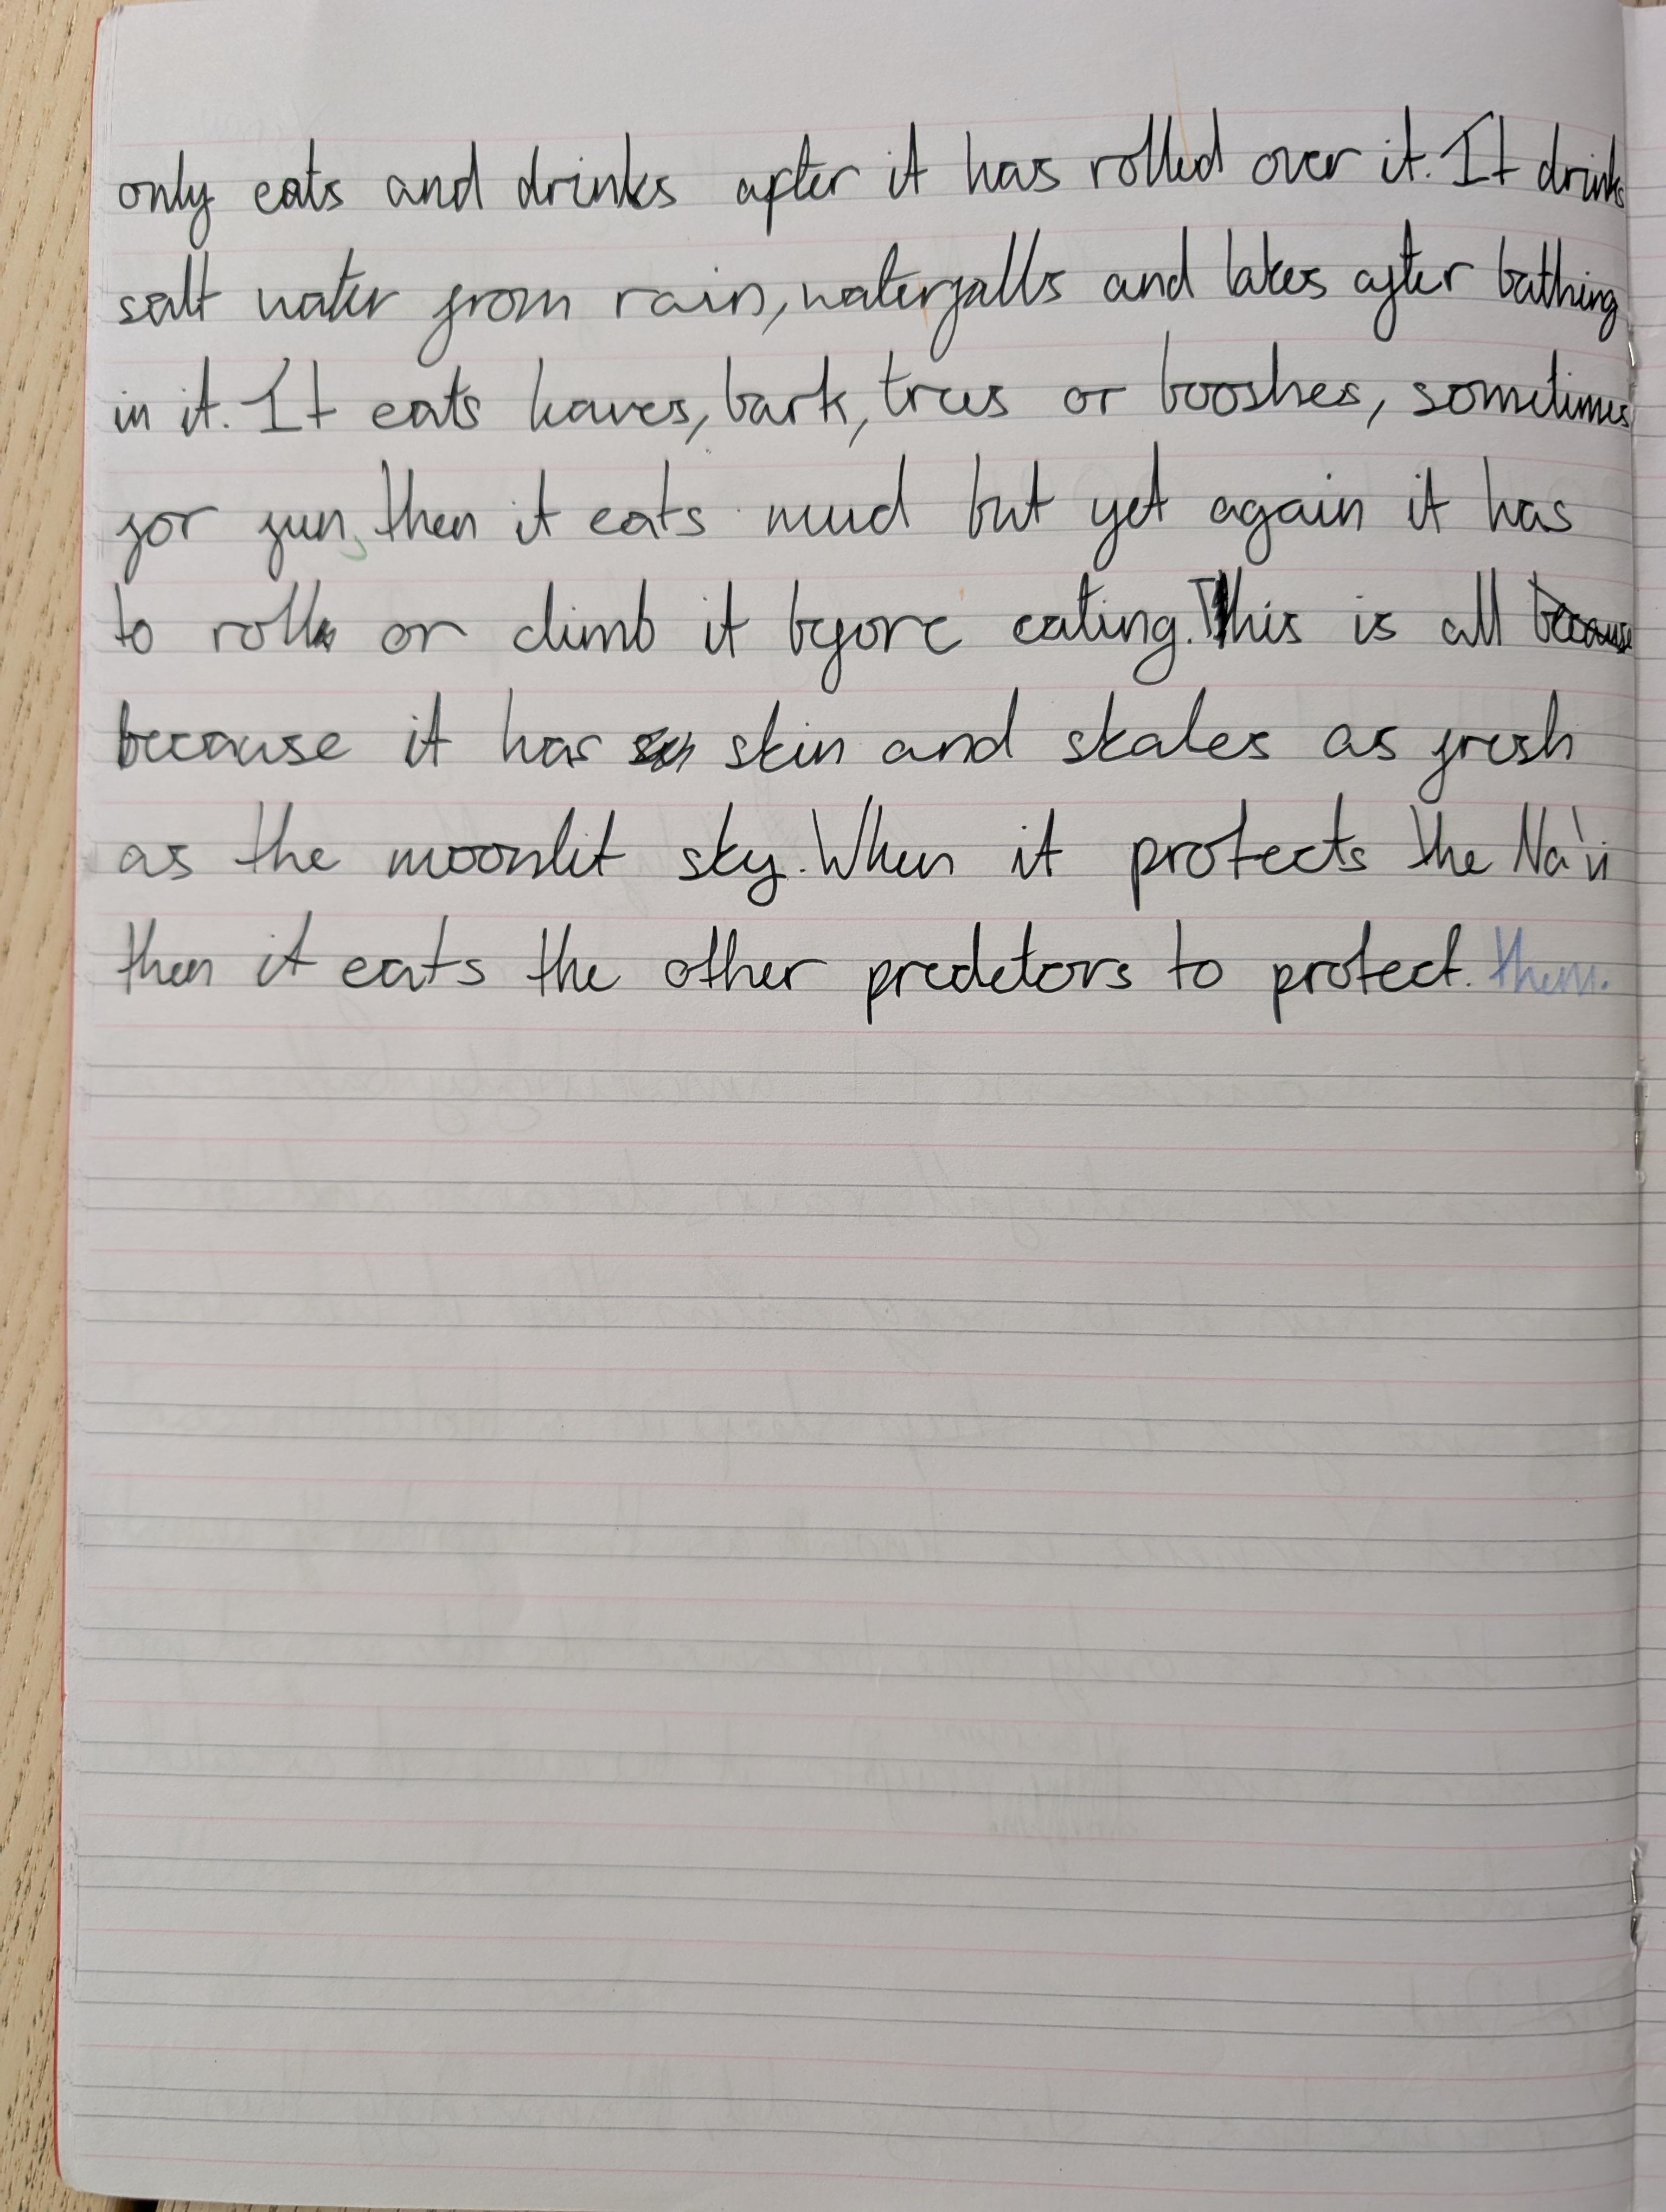 only eats and drinks after it has rolled over it. It drinks
salt water from rain, waterfalls and lakes after bathing
in it. It eats leaves, bark, trees or booshes, sometimes
for fun, then it eats mud but yet again it has
to roll or climb it before eating. This is all because
because it has skin and skales as fresh
as the moonlit sky. When it protects the Na'vi
then it eats the other predetors to protect. them.